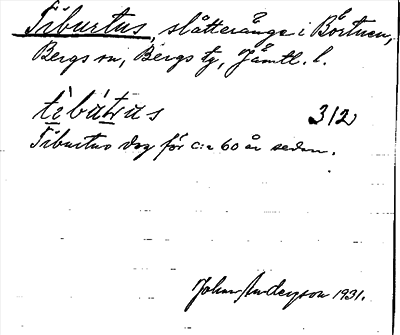 Tiburtus, slåtteränge i Börtnen,
Bergs sn, Bergs tg, Jämtl. l.
tìbútrus 312
Tiburtus dog för c:a 60 år sedan.
Johan Anderson 1931.